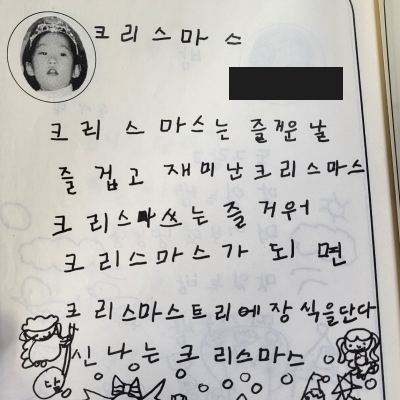 크리스마스
크리스마스는 즐거운 날
즐겁고 재미난 크리스마스
크리스마쓰는 즐거워
크리스마스가 되면
크리스마스트리에 장식을단다
신나는 크리스마스